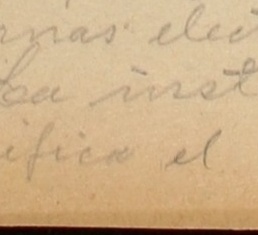 rnas elec
La inst
ifica el